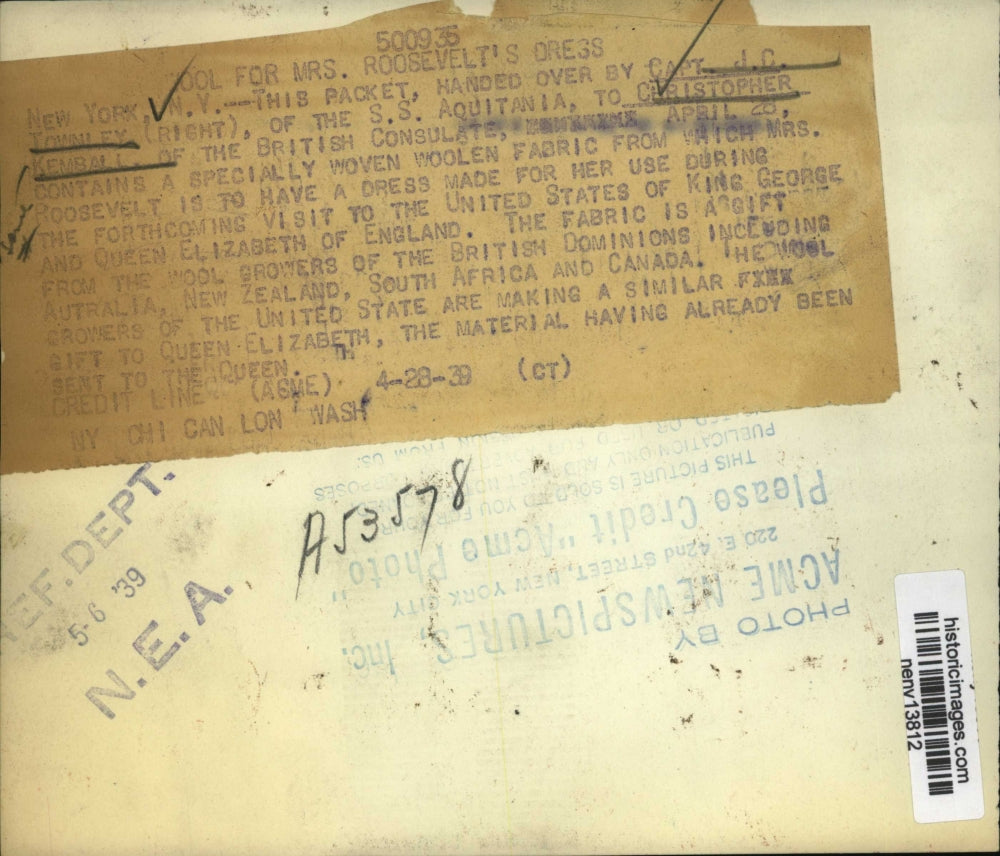 500935
OOL FOR MRS. ROOSEVELT'S DRESS
NEW YORK, N.Y.--THIS PACKET, HANDED OVER BY CAPT. J.C.
TOWNLEY (RIGHT), OF THE S.S. AQUITANIA, TO CHRISTOPHER
KEMBALL, OF THE BRITISH CONSULATE, APRIL 28,
CONTAINS A SPECIALLY WOVEN WOOLEN FABRIC FROM WHICH MRS.
ROOSEVELT IS TO HAVE A DRESS MADE FOR HER USE DURING
THE FORTHCOMING VISIT TO THE UNITED STATES OF KING GEORGE
AND QUEEN ELIZABETH OF ENGLAND. THE FABRIC IS A GIFT
FROM THE WOOL GROWERS OF THE BRITISH DOMINIONS INCLUDING
AUTRALIA, NEW ZEALAND, SOUTH AFRICA AND CANADA. THE WOOL
GROWERS OF THE UNITED STATE ARE MAKING A SIMILAR FXXX
GIFT TO QUEEN ELIZABETH, THE MATERIAL HAVING ALREADY BEEN
SENT TO THE QUEEN. TH
CREDIT LINE (ACME) 4-28-39 (CT)
NY CHI CAN LON WASH
A53578
REF. DEPT.
5-6 '39
N.E.A.
PHOTO BY
ACME NEWSPICTURES, Inc.
220 E. 42nd STREET, NEW YORK CITY
Please Credit "Acme Photo"
THIS PICTURE IS SOLD TO YOU FOR YOUR
PUBLICATION ONLY AND MUST NOT BE
historicimages.com
nenv13812